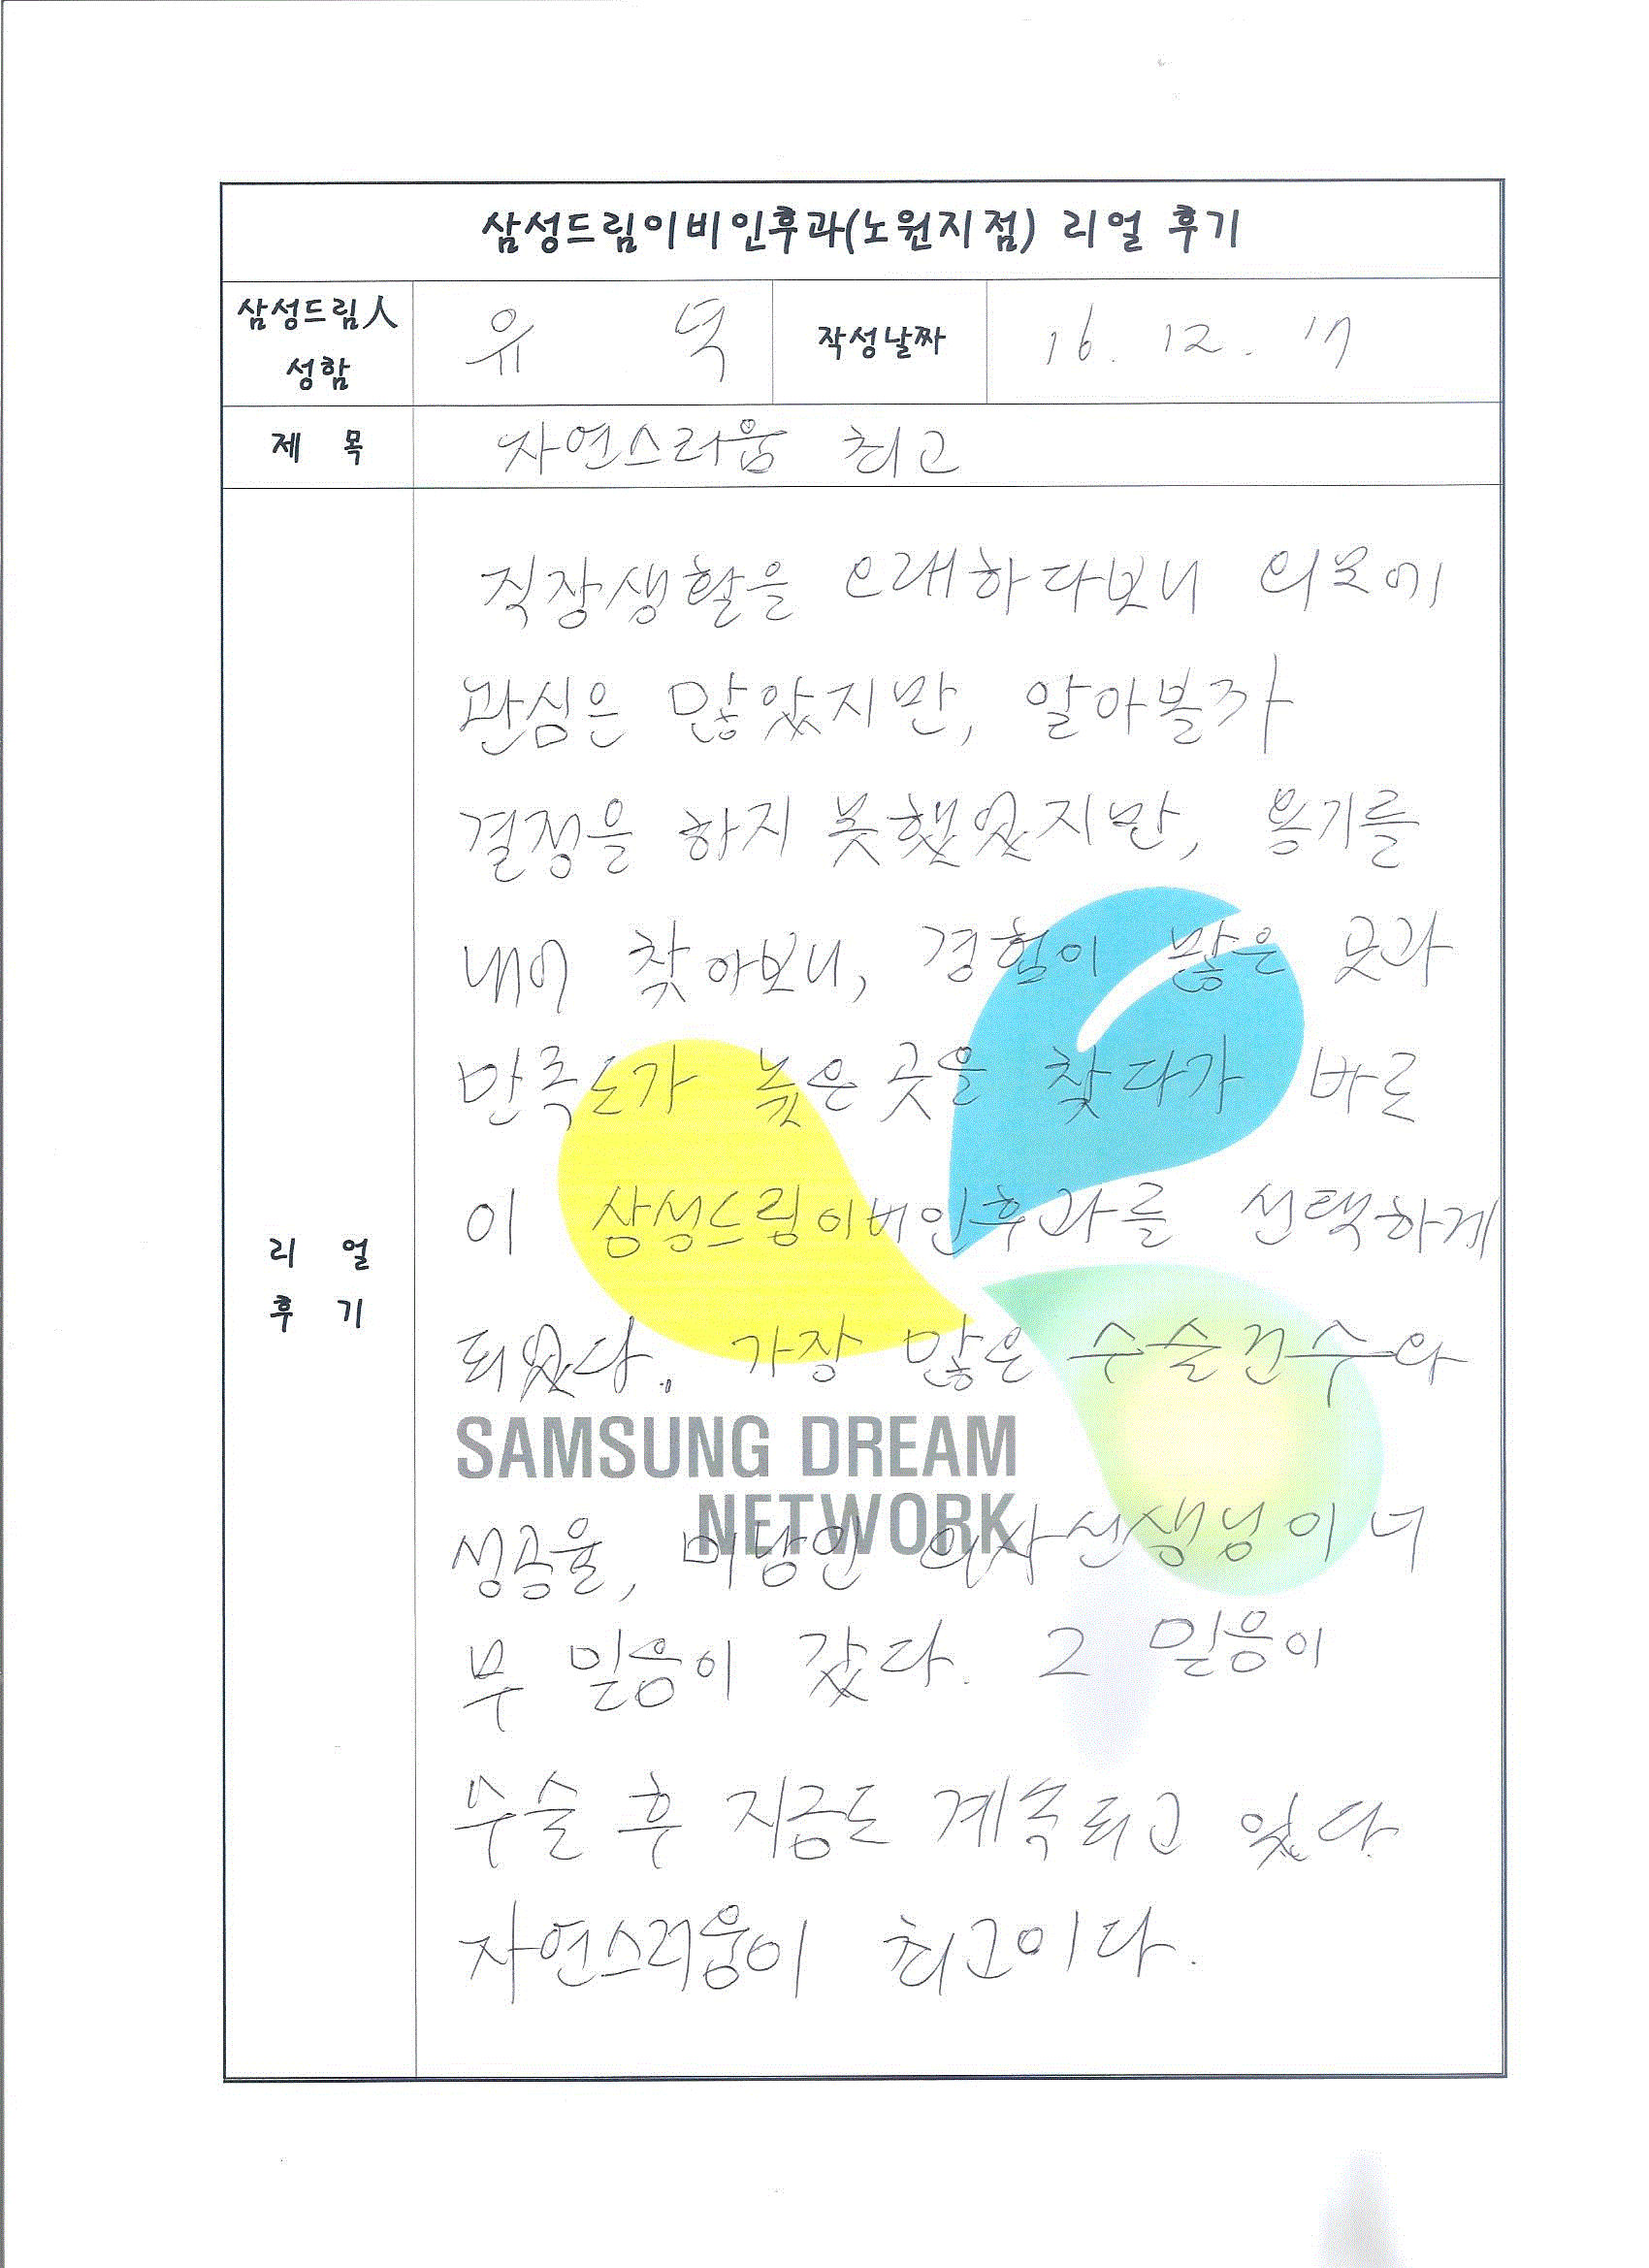 삼성드림이비인후과(노원지점) 리얼 후기
삼성드림人
성함
유 덕
작성날짜
16. 12. 17
제 목
자연스러움 최고
리 얼
후 기
직장생활을 오래하다보니 외모에
관심은 많았지만, 알아볼까
결정을 하지 못했었지만, 용기를
내어 찾아보니, 경험이 많은 곳과
만족도가 높은 곳을 찾다가 바로
이 삼성드림이비인후과를 선택하게
되었다. 가장 많은 수술건수와
SAMSUNG DREAM
NETWORK
성공율, 미남인 의사선생님이 너
무 믿음이 갔다. 그 믿음이
수술 후 지금도 계속되고 있다.
자연스러움이 최고이다.